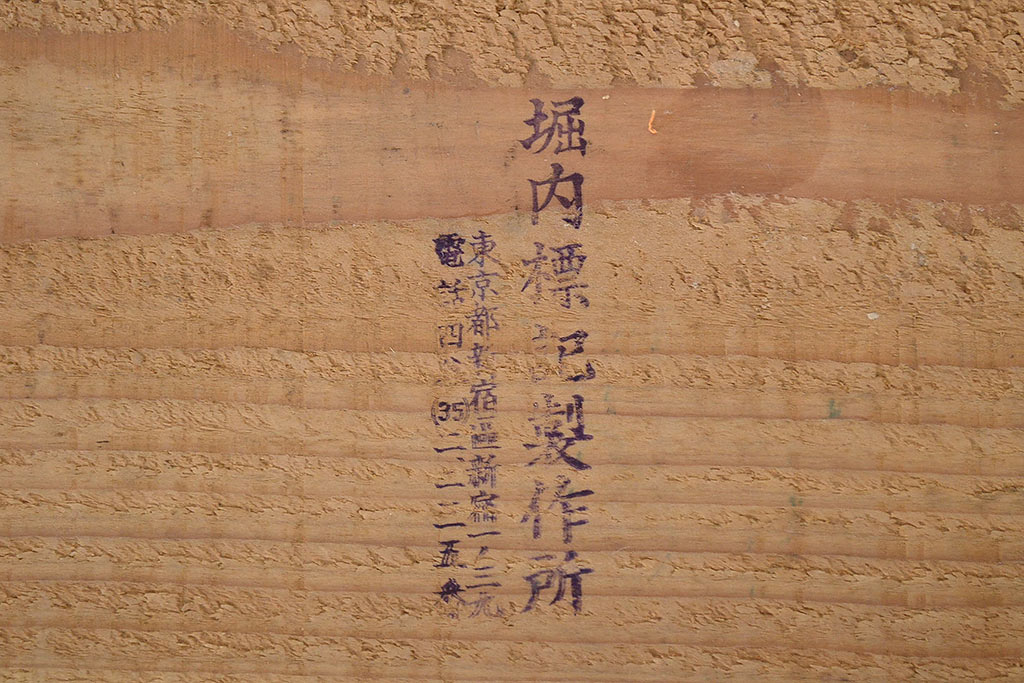 堀内標記製作所
東京都新宿區新宿一ノ三九
電話四谷(35)二、二二一五番